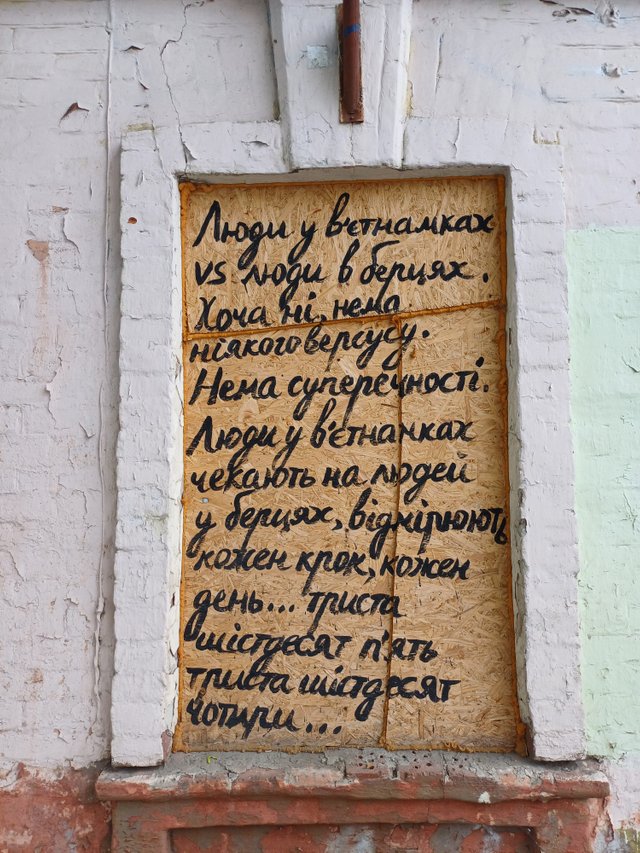 Люди у в'єтнамках
vs люди в берцях.
Хоча ні, нема
ніякого версусу.
Нема суперечності.
Люди у в'єтнамках
чекають на людей
у берцях, відмірюють
кожен крок, кожен
день... триста
шістдесят п'ять
триста шістдесят
чотири...